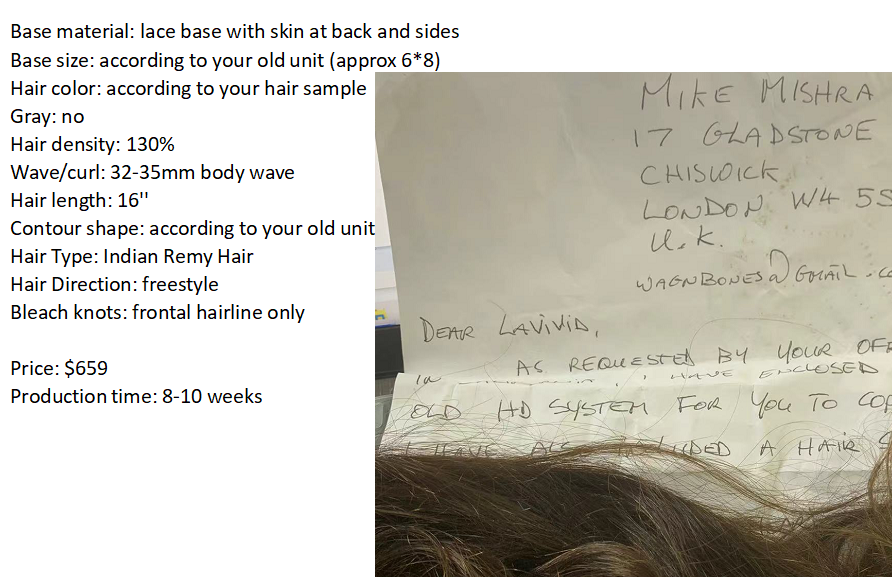 Base material: lace base with skin at back and sides
Base size: according to your old unit (approx 6*8)
Hair color: according to your hair sample
Gray: no
Hair density: 130%
Wave/curl: 32-35mm body wave
Hair length: 16''
Contour shape: according to your old unit
Hair Type: Indian Remy Hair
Hair Direction: freestyle
Bleach knots: frontal hairline only
Price: $659
Production time: 8-10 weeks
MIKE MISHRA
17 GLADSTONE
CHISWICK
LONDON W4 5S
U.K.
WAGNBONES@GMAIL.CO
DEAR LAVIVID,
AS REQUESTED BY YOUR OFF
I HAVE ENCLOSED
OLD HD SYSTEM FOR YOU TO COP
I HAVE A HAIR S